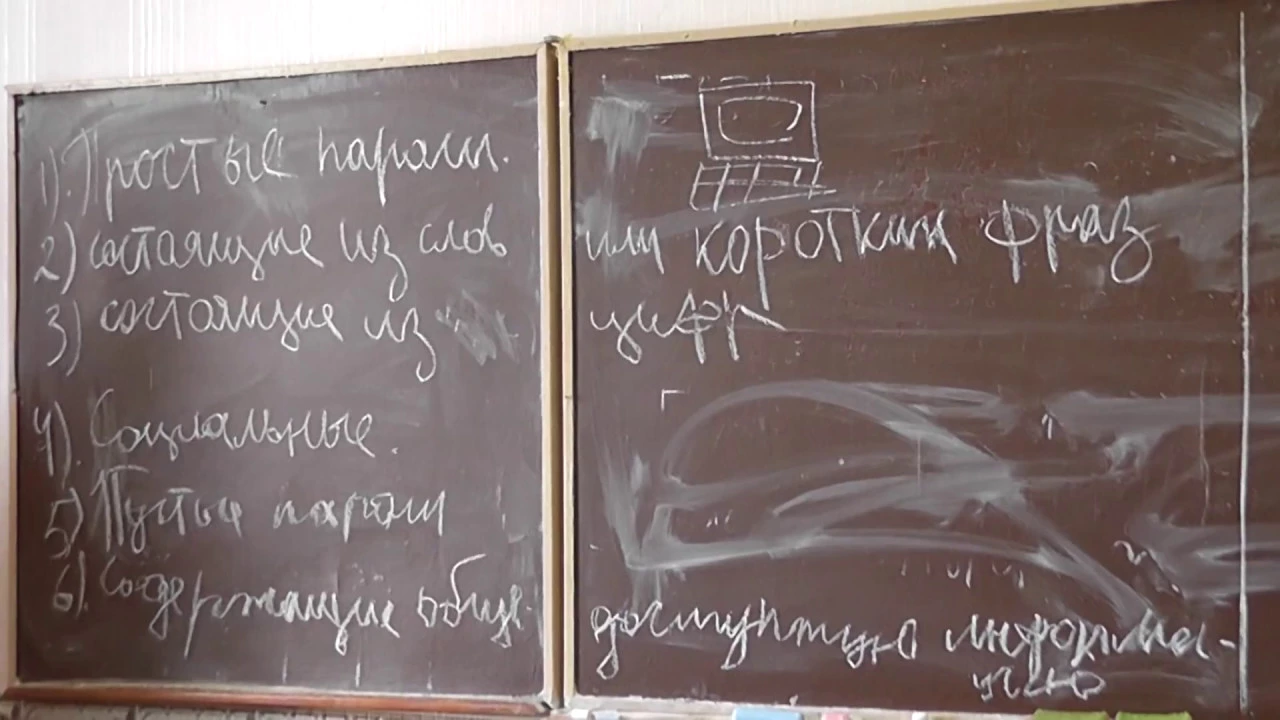 1). Простые пароли.
2) состоящие из слов или коротких фраз
3) состоящие из цифр
4). Социальные.
5) Пустые пароли
6). Содержащие обще-доступную информа-
цию